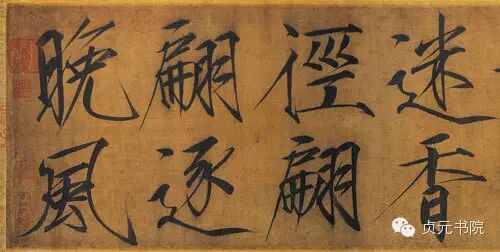 迷香
徑翩
翩逐
晚風
贞元书院